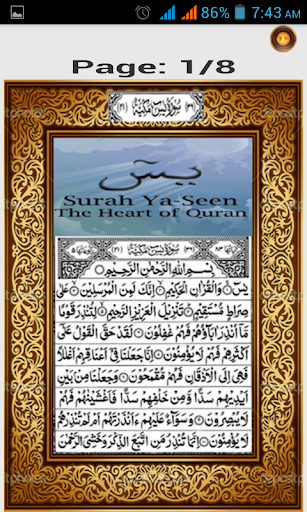 86% 7:43 AM
Page: 1/8
(٣٦) سُوْرَةُ يٰسٓ مَكِّيَّةٌ (٤١)
يٰسٓ
Surah Ya-Seen
The Heart of Quran
اٰيَاتُهَا ٨٣ (٣٦) سُوْرَةُ يٰسٓ مَكِّيَّةٌ (٤١) رُكُوْعَاتُهَا ٥
بِسْمِ اللّٰهِ الرَّحْمٰنِ الرَّحِيْمِ
يٰسٓ ۝ وَالْقُرْاٰنِ الْحَكِيْمِ ۝ اِنَّكَ لَمِنَ الْمُرْسَلِيْنَ ۝ عَلٰى
صِرَاطٍ مُّسْتَقِيْمٍ ۝ تَنْزِيْلَ الْعَزِيْزِ الرَّحِيْمِ ۝ لِتُنْذِرَ قَوْمًا
مَّآ اُنْذِرَ اٰبَآؤُهُمْ فَهُمْ غٰفِلُوْنَ ۝ لَقَدْ حَقَّ الْقَوْلُ عَلٰٓى
اَكْثَرِهِمْ فَهُمْ لَا يُؤْمِنُوْنَ ۝ اِنَّا جَعَلْنَا فِيْٓ اَعْنَاقِهِمْ اَغْلٰلًا
فَهِيَ اِلَى الْاَذْقَانِ فَهُمْ مُّقْمَحُوْنَ ۝ وَجَعَلْنَا مِنْۢ بَيْنِ
اَيْدِيْهِمْ سَدًّا وَّمِنْ خَلْفِهِمْ سَدًّا فَاَغْشَيْنٰهُمْ فَهُمْ
لَا يُبْصِرُوْنَ ۝ وَسَوَآءٌ عَلَيْهِمْ ءَاَنْذَرْتَهُمْ اَمْ لَمْ تُنْذِرْهُمْ
لَا يُؤْمِنُوْنَ ۝ اِنَّمَا تُنْذِرُ مَنِ اتَّبَعَ الذِّكْرَ وَخَشِيَ الرَّحْمٰنَ